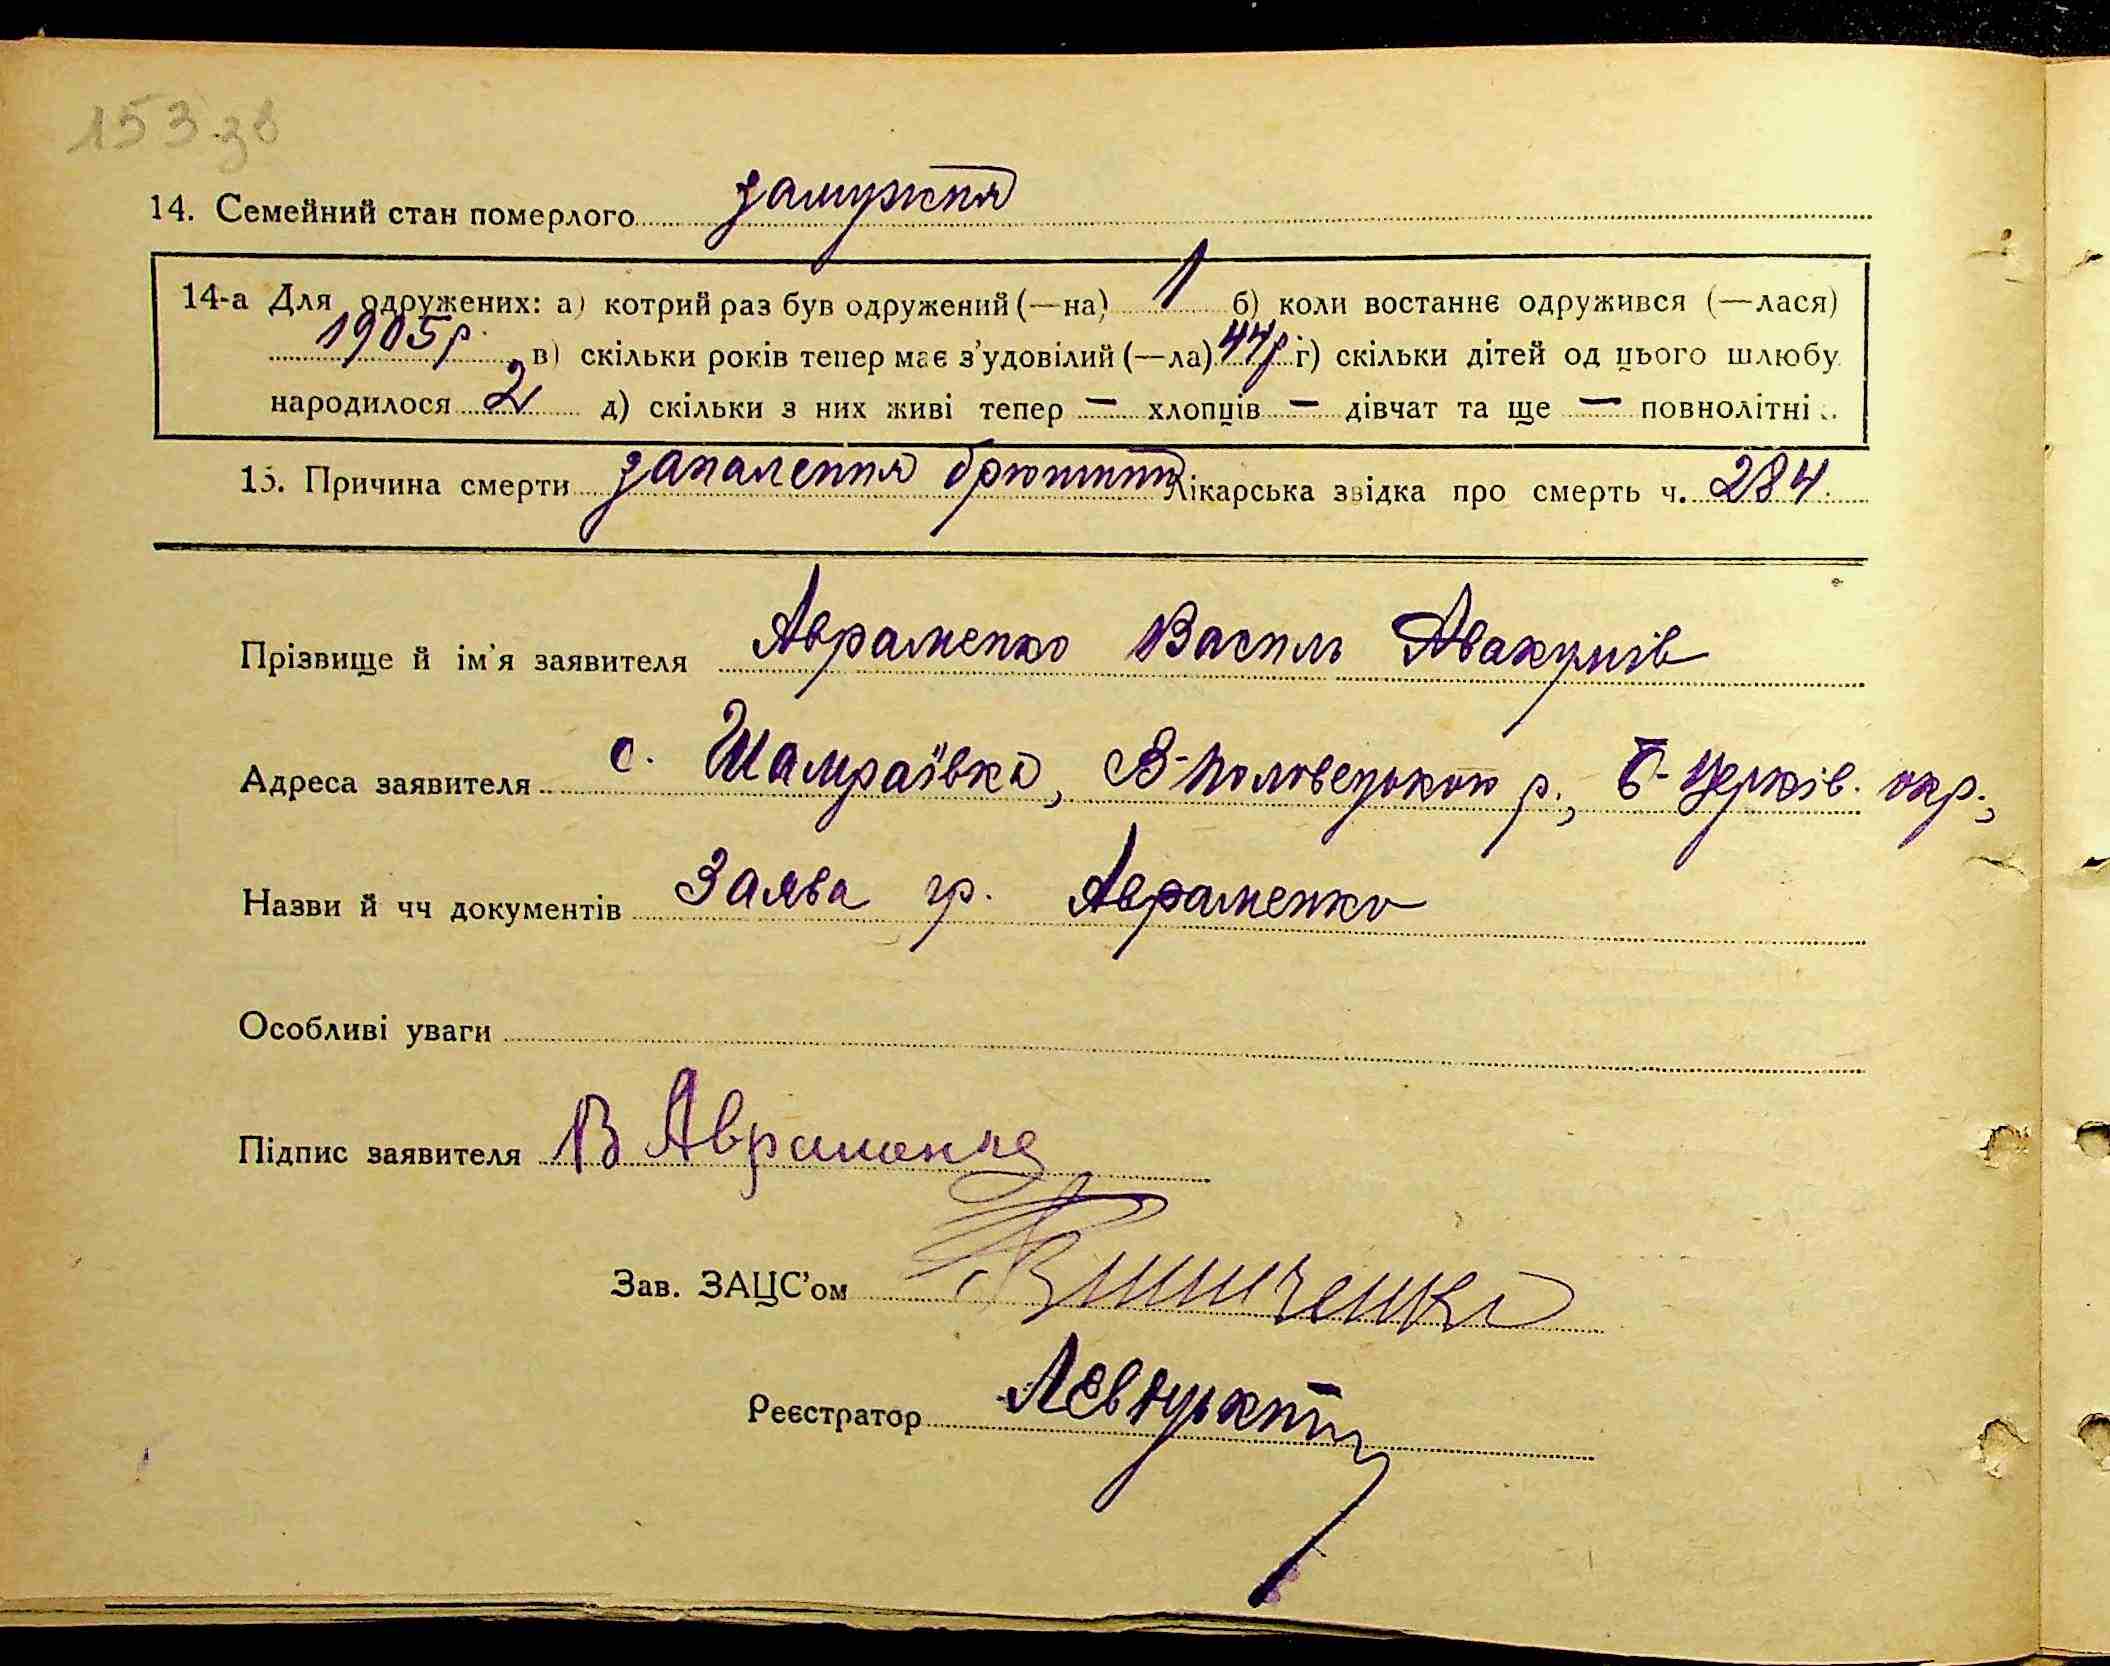 153 зв
14. Семейний стан померлого замужня
14-а Для одружених: а) котрий раз був одружений (—на) 1 б) коли востаннє одружився (—лася)
1905р. в) скільки років тепер має з'удовілий (—ла) 44р. г) скільки дітей од цього шлюбу
народилося 2 д) скільки з них живі тепер — хлопців — дівчат та ще — повнолітні
15. Причина смерти запалення брюшини Лікарська звідка про смерть ч. 284.
Прізвище й ім'я заявителя Авраменко Василь Авакумів
Адреса заявителя с. Шамраївка, В-Половецького р., Б-Церків. окр.,
Назви й чч документів Заява гр. Авраменко
Особливі уваги
Підпис заявителя В Авраменко
Зав. ЗАЦС'ом
Реєстратор